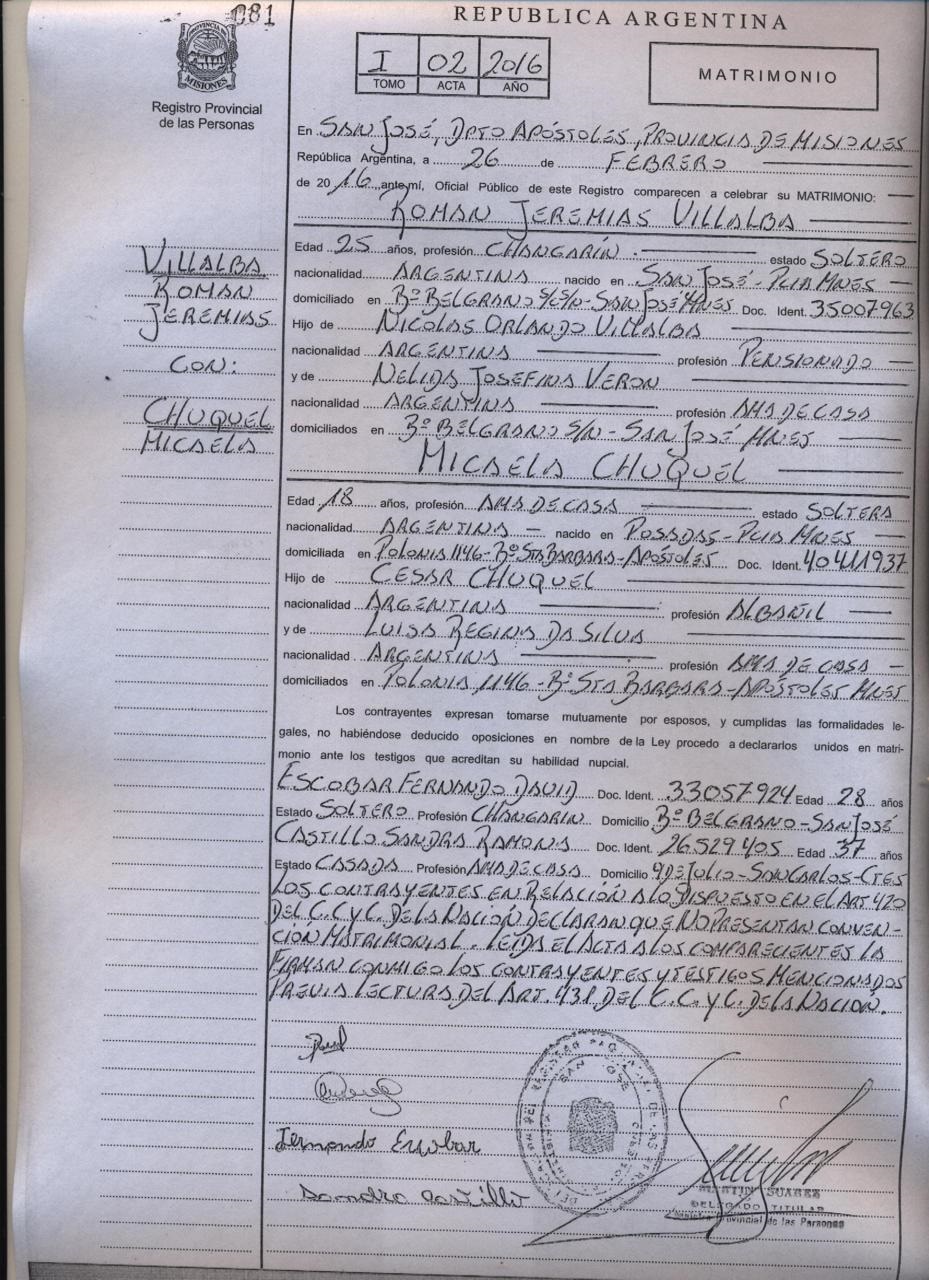 081
PROVINCIA DE
MISIONES
Registro Provincial
de las Personas
REPUBLICA ARGENTINA
I 02 2016
TOMO ACTA AÑO
MATRIMONIO
En SAN JOSÉ, DPTO APÓSTOLES, PROVINCIA DE MISIONES
República Argentina, a 26 de FEBRERO
de 2016, ante mí, Oficial Público de este Registro comparecen a celebrar su MATRIMONIO:
ROMAN JEREMIAS VILLALBA
VILLALBA
ROMAN
JEREMIAS
CON:
CHUQUEL
MICAELA
Edad 25 años, profesión CHANGARÍN. estado SOLTERO
nacionalidad ARGENTINA nacido en SAN JOSÉ - PCIA MNES
domiciliado en Bº BELGRANO S/N - SAN JOSÉ MNES Doc. Ident. 35007963
Hijo de NICOLAS ORLANDO VILLALBA
nacionalidad ARGENTINA profesión PENSIONADO
y de NELIDA JOSEFINA VERON
nacionalidad ARGENTINA profesión AMA DE CASA
domiciliados en Bº BELGRANO S/N - SAN JOSÉ MNES
MICAELA CHUQUEL
Edad 18 años, profesión AMA DE CASA estado SOLTERA
nacionalidad ARGENTINA nacido en POSADAS - PCIA MNES
domiciliada en POLONIA 1146 - Bº STA BARBARA - APÓSTOLES Doc. Ident. 40411937
Hijo de CESAR CHUQUEL
nacionalidad ARGENTINA profesión ALBAÑIL
y de LUISA REGINA DA SILVA
nacionalidad ARGENTINA profesión AMA DE CASA
domiciliados en POLONIA 1146 - Bº STA BARBARA - APÓSTOLES MNES
Los contrayentes expresan tomarse mutuamente por esposos, y cumplidas las formalidades le-
gales, no habiéndose deducido oposiciones en nombre de la Ley procedo a declararlos unidos en matri-
monio ante los testigos que acreditan su habilidad nupcial.
ESCOBAR FERNANDO DAVID Doc. Ident. 33057924 Edad 28 años
Estado SOLTERO Profesión CHANGARIN Domicilio Bº BELGRANO - SAN JOSÉ
CASTILLO SANDRA RAMONA Doc. Ident. 26529405 Edad 37 años
Estado CASADA Profesión AMA DE CASA Domicilio 9 DE JULIO - SAN CARLOS - CTES
LOS CONTRAYENTES EN RELACIÓN A LO DISPUESTO EN EL ART 420
DEL C.C y C. DE LA NACIÓN DECLARAN QUE NO PRESENTAN CONVEN-
CIÓN MATRIMONIAL. LEIDA EL ACTA A LOS COMPARECIENTES LA
FIRMAN CONMIGO LOS CONTRAYENTES Y TESTIGOS MENCIONADOS
PREVIA LECTURA DEL ART. 431 DEL C.C. y C. DE LA NACIÓN.
Fernando Escobar
Sandra Castillo
SAN JOSE
MARTIN SUAREZ
DELEGADO TITULAR
Registro Provincial de las Personas